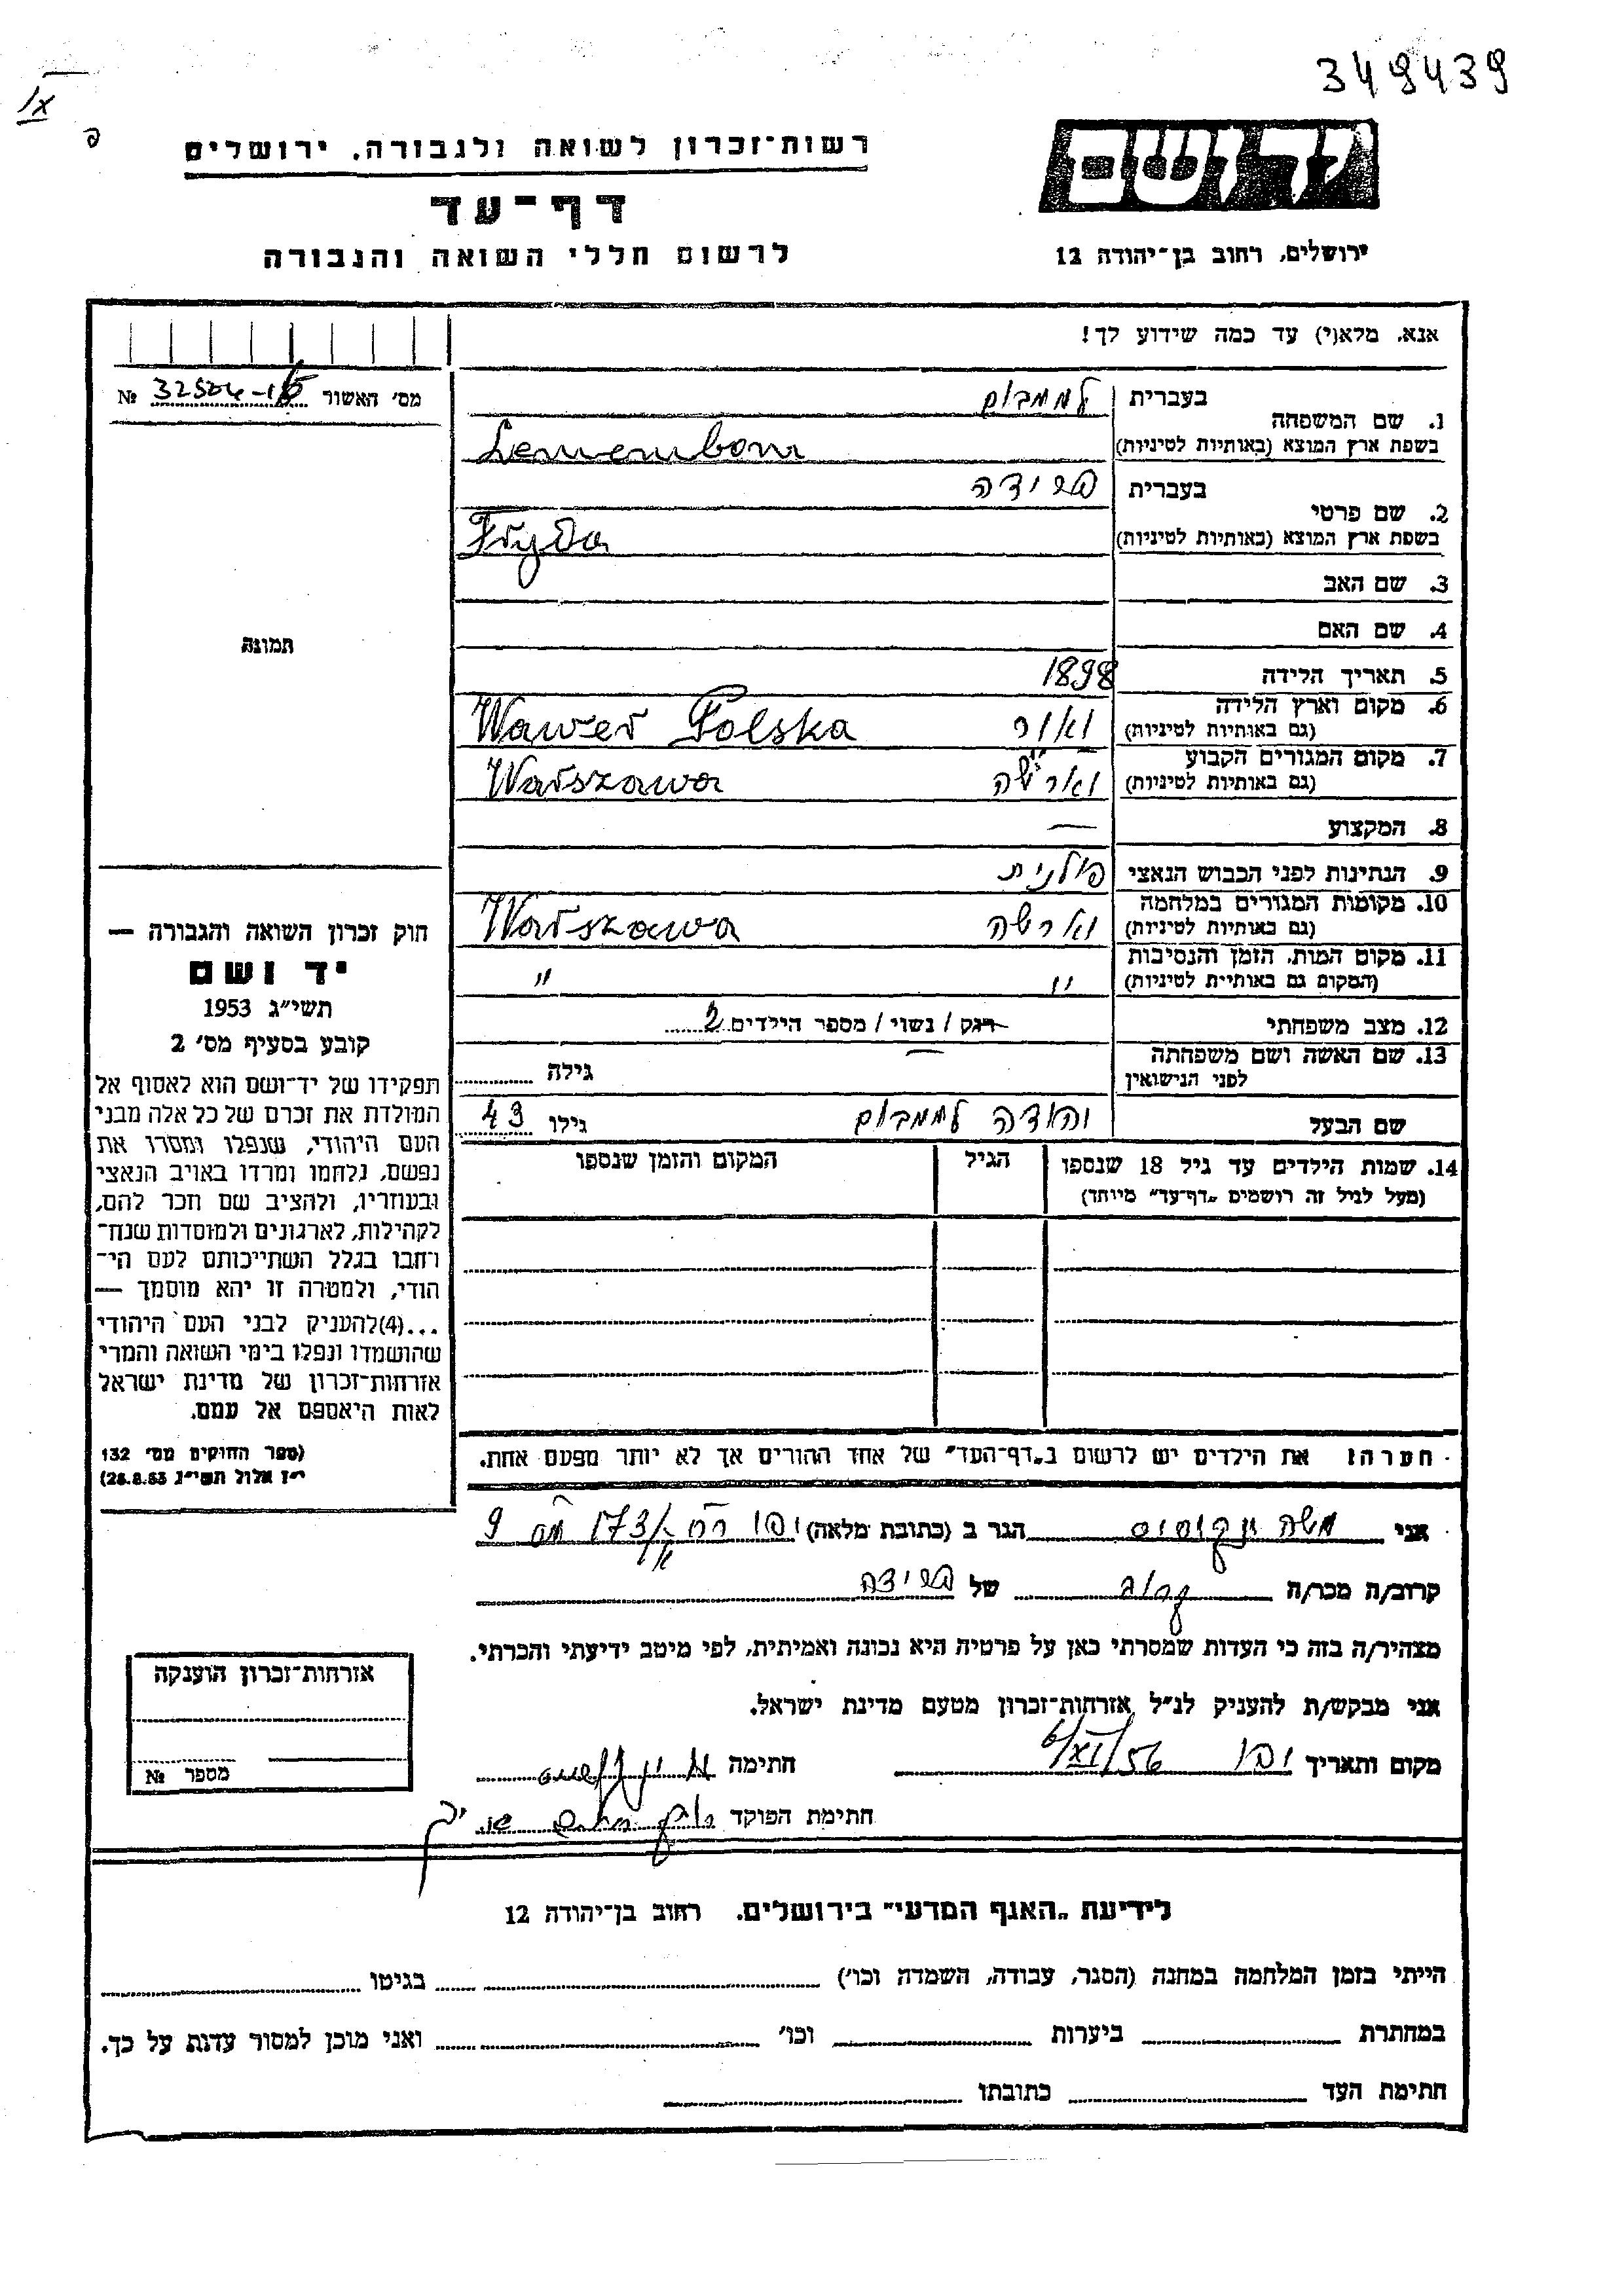 349439
IX
רשות־זכרון לשואה ולגבורה, ירושלים
יד ושם
דף־עד
לרשום חללי השואה והגבורה
ירושלים, רחוב בן־יהודה 12
אנא, מלא(י) עד כמה שידוע לך!
מס׳ האשור № 32504-
1. שם המשפחה בעברית
בשפת ארץ המוצא (באותיות לטיניות)
2. שם פרטי בעברית פרידה
בשפת ארץ המוצא (באותיות לטיניות) Fryda
3. שם האב
4. שם האם
5. תאריך הלידה 1898
6. מקום וארץ הלידה ואור Wawer Polska
(גם באותיות לטיניות)
7. מקום המגורים הקבוע וארשה Warszawa
(גם באותיות לטיניות)
8. המקצוע —
9. הנתינות לפני הכבוש הנאצי פולנית
10. מקומות המגורים במלחמה וארשה Warszawa
(גם באותיות לטיניות)
11. מקום המות, הזמן והנסיבות " "
(המקום גם באותיית לטיניות)
12. מצב משפחתי רוק / נשוי / מספר הילדים 2
13. שם האשה ושם משפחתה — גילה
לפני הנישואין
שם הבעל גילו 43
14. שמות הילדים עד גיל 18 שנספו הגיל המקום והזמן שנספו
(מעל לגיל זה רושמים „דף־עד״ מיוחד)
הערה: את הילדים יש לרשום ב„דף־העד״ של אחד ההורים אך לא יותר מפעם אחת.
תמונה
חוק זכרון השואה והגבורה —
יד ושם
תשי״ג 1953
קובע בסעיף מס׳ 2
תפקידו של יד־ושם הוא לאסוף אל
המולדת את זכרם של כל אלה מבני
העם היהודי, שנפלו ומסרו את
נפשם, נלחמו ומרדו באויב הנאצי
ובעוזריו, ולהציב שם וזכר להם,
לקהילות, לארגונים ולמוסדות שנח־
רבו בגלל השתייכותם לעם הי־
הודי, ולמטרה זו יהא מוסמך —
...(4)להעניק לבני העם היהודי
שהושמדו ונפלו בימי השואה והמרי
אזרחות־זכרון של מדינת ישראל
לאות היאספם אל עמם.
(ספר החוקים מס׳ 132
י״ז אלול תשי״ג 28.8.53)
אני משה הגר ב (כתובת מלאה) יפו 173 9
קרוב/ה מכר/ה קרוב של פרידה
מצהיר/ה בזה כי העדות שמסרתי כאן על פרטיה היא נכונה ואמיתית, לפי מיטב ידיעתי והכרתי.
אני מבקש/ת להעניק לנ״ל אזרחות־זכרון מטעם מדינת ישראל.
מקום ותאריך יפו 6/XI/56 חתימה
חתימת הפוקד
אזרחות־זכרון הוענקה
מספר №
לידיעת „האגף המדעי״ בירושלים, רחוב בן־יהודה 12
הייתי בזמן המלחמה במחנה (הסגר, עבודה, השמדה וכו׳) בגיטו
במחתרת ביערות וכו׳ ואני מוכן למסור עדות על כך.
חתימת העד כתובתו